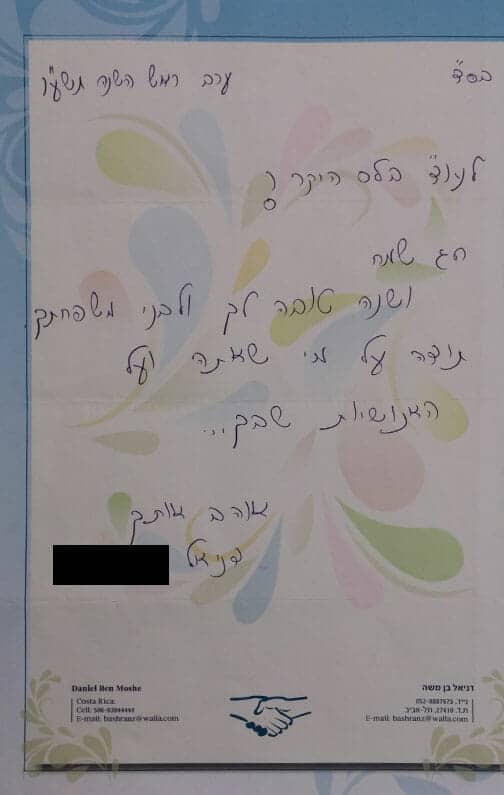 בס"ד
ערב ראש השנה תשע"ו
היקר!
חג שמח
ושנה טובה לך ולבני משפחתך.
תודה על מי שאתה ועל
האנושיות שבך...
אוהב אותך
דניאל
Daniel Ben Moshe
Costa Rica:
Cell: 506-83044444
E-mail: bashranz@walla.com
דניאל בן משה
נייד. 052-8887675
ת.ד. 27418, תל-אביב
E-mail: bashranz@walla.com